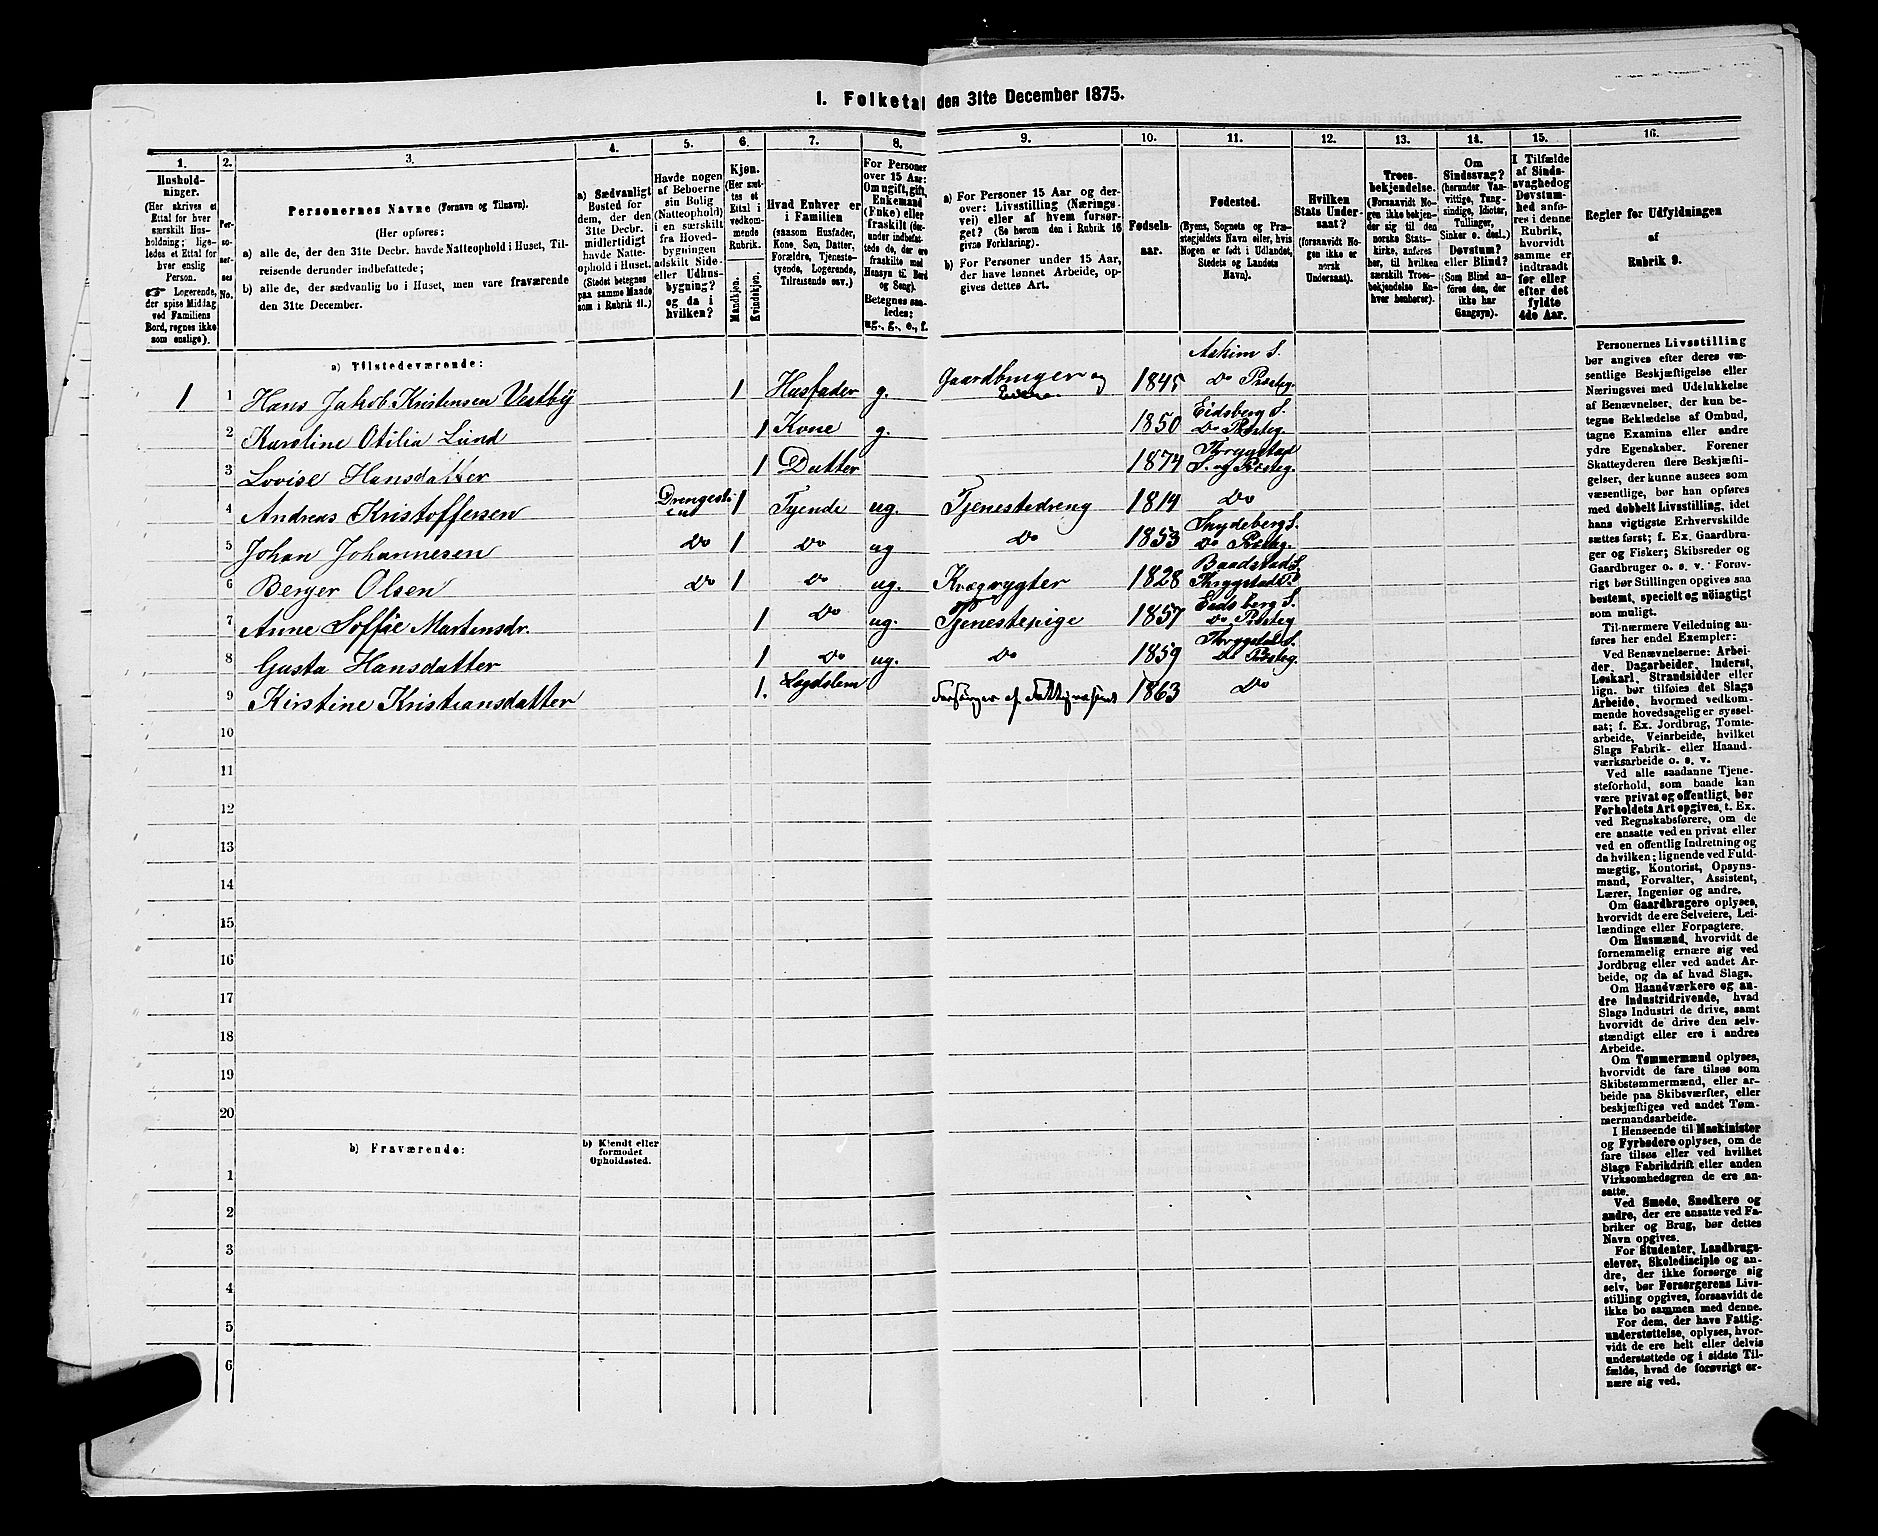 I. Folketal den 31te December 1875.
1. 2. 3. 4. 5. 6. 7. 8. 9. 10. 11. 12. 13. 14. 15. 16.
Hushold-
ninger.
(Her skrives et
Ettal for hver
særskilt Hus-
holdning; lige-
ledes et Ettal for
hver enslig
Person.
☞ Logerende,
der spise Middag
ved Familiens
Bord, regnes ikke
som enslige).
Per-
so-
ner-
nes
No.
Personernes Navne (Fornavn og Tilnavn).
(Her opføres:
a) alle de, der den 31te Decbr. havde Natteophold i Huset, Til-
reisende derunder indbefattede;
b) alle de, der sædvanlig bo i Huset, men vare fraværende
den 31te December.
a) Sædvanligt
Bosted for
dem, der den
31te Decbr.
midlertidigt
havde Natte-
ophold i Huset.
(Stedet betegnes
paa samme Maade
som i Rubrik 11.)
Havde nogen
af Beboerne
sin Bolig
(Natteophold)
i en særskilt
fra Hoved-
bygningen
adskilt Side-
eller Udhus-
bygning?
og da i
hvilken?
Kjøn.
(Her sæt-
tes et
Ettal i
vedkom-
mende
Rubrik.
Mandkjøn.
Kvindekjøn.
Hvad Enhver er
i Familien
(saasom Husfader,
Kone, Søn, Datter,
Forældre, Tjeneste-
tyende, Logerende,
Tilreisende osv.)
For Personer
over 15 Aar:
Om ugift, gift,
Enkemand
(Enke) eller
fraskilt (der-
under indbefat-
tede de, der ere
fraskilte med
Hensyn til Bord
og Seng).
Betegnes saa-
ledes:
ug., g., e., f.
a) For Personer 15 Aar og der-
over: Livsstilling (Nærings-
vei) eller af hvem forsør-
get? (Se herom den i Rubrik 16
givne Forklaring).
b) For Personer under 15 Aar,
der have lønnet Arbeide, op-
gives dettes Art.
Fødsels-
aar.
Fødested.
(Byens, Sognets og Præ-
stegjeldets Navn, eller, hvis
Nogen er født i Udlandet,
Stedets og Landets
Navn).
Hvilken
Stats Under-
saat?
(forsaavidt No-
gen ikke er
norsk
Undersaat).
Troes-
bekjendelse.
(Forsaavidt No-
gen ikke bekjen-
der sig til den
norske Stats-
kirke, anføres
her, til hvilken
særskilt Troes-
bekjendelse En-
hver henhører).
Om
Sindssvag?
(herunder Van-
vittige, Tung-
sindige, Idioter,
Tullinger,
Sinker o. desl.)
Døvstum?
eller Blind?
(Som Blind an-
føres den, der
ikke har
Gangsyn).
I Tilfælde
af Sinds-
svaghed og
Døvstum-
hed anfø-
res i denne
Rubrik,
hvorvidt
samme er
indtraadt
før eller
efter det
fyldte
4de Aar.
Regler for Udfyldningen
af
Rubrik 9.
a) Tilstedeværende:
1 1 Hans Jakob Kristensen Vestby 1 Husfader g. Gaardbruger og 1845 Askim S. Do Præsteg.
2 Karoline Otilia Lund 1 Kone g. 1850 Eidsberg S. Do Præsteg.
3 Lovise Hansdatter 1 Datter 1874 Thrygstad S. og Præsteg.
4 Andreas Kristoffersen 1 Tyende ug. Tjenestedreng 1814 Do
5 Johan Johannesen Do 1 Do ug Do 1853 Spydeberg S. Do Præsteg.
6 Berger Olsen Do 1 Do ug. Kvægrygter 1828 Baadstad S. Thrygstad P.
7 Anne Soffie Martensdr. 1 Do ug. Tjenestepige 1857 Eidsberg S. Do Præsteg
8 Gusta Hansdatter 1 Do ug. Do 1859 Thrygstad S. Do Præsteg.
9 Kirstine Kristiansdatter 1. Lægdslem Forsørges af Fattigvæsenet 1863 Do
10
11
12
13
14
15
16
17
18
19
20
b) Fraværende:
b) Kjendt eller
formodet
Opholdssted.
1
2
3
4
5
6
Personernes Livsstilling
bør angives efter deres væ-
sentlige Beskjæftigelse eller
Næringsvei med Udelukkelse
af Benævnelser, der kun be-
tegne Beklædelse af Ombud,
tagne Examina eller andre
ydre Egenskaber. Forener
Skatteyderen flere Beskjæfti-
gelser, der kunne ansees som
væsentlige, bør han opføres
med dobbelt Livsstilling, idet
hans vigtigste Erhvervskilde
sættes først; f. Ex. Gaardbru-
ger og Fisker; Skibsreder og
Gaardbruger o. s. v. Forøv-
rigt bør Stillingen opgives saa
bestemt, specielt og nøiagtigt
som muligt.
Til nærmere Veiledning an-
føres her endel Exempler:
Ved Benævnelserne: Arbei-
der, Dagarbeider, Inderst,
Løskarl, Strandsidder eller
lign. bør tilføies det Slags
Arbeide, hvormed vedkom-
mende hovedsagelig er syssel-
sat; f. Ex. Jordbrug, Tomte-
arbeide, Veiarbeide, hvilket
Slags Fabrik- eller Haand-
værksarbeide o. s. v.
Ved alle saadanne Tjene-
steforhold, som baade kan
være privat og offentligt, bør
Forholdets Art opgives, t. Ex.
ved Regnskabsførere, om de
ere ansatte ved en privat eller
ved en offentlig Indretning og
da hvilken; lignende ved Fuld-
mægtig, Kontorist, Opsyns-
mand, Forvalter, Assistent,
Lærer, Ingeniør og andre.
Om Gaardbrugere oplyses,
hvorvidt de ere Selveiere, Lei-
lændinge eller Forpagtere.
Om Husmænd, hvorvidt de
fornemmelig ernære sig ved
Jordbrug eller ved andet Ar-
beide, og da af hvad Slags.
Om Haandværkere og an-
dre Industridrivende, hvad
Slags Industri de drive, samt
hvorvidt de drive den selv-
stændigt eller ere i andres
Arbeide.
Om Tømmermænd oplyses,
hvorvidt de fare tilsøs som
Skibstømmermænd, eller ar-
beide paa Skibsværfter, eller
beskjæftiges ved andet Tøm-
mermandsarbeide.
I Henseende til Maskinister
og Fyrbødere oplyses, om de
fare tilsøs eller ved hvilket
Slags Fabrikdrift eller anden
Virksomhedsgren de ere an-
satte.
Ved Smede, Snedkere og
andre, der ere ansatte ved Fa-
briker og Brug, bør dettes
Navn opgives.
For Studenter, Landbrugs-
elever, Skoledisciple og an-
dre, der ikke forsørge sig
selv, bør Forsørgerens Livs-
stilling opgives, forsaavidt de
ikke bo sammen med denne.
For dem, der have Fattig-
understøttelse, oplyses, hvor-
vidt de ere helt eller delvis
understøttede og i sidste Til-
fælde, hvad de forøvrigt er-
nære sig ved.